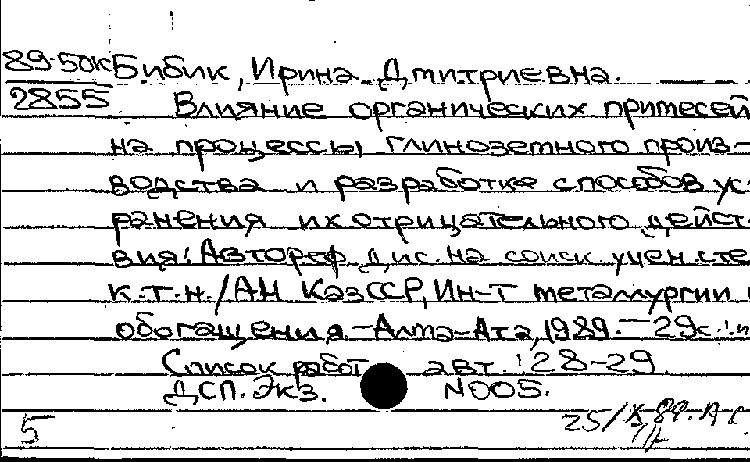 89-50к Бибик, Ирина Дмитриевна.
2855 Влияние органических примесей
на процессы глиноземного произ-
водства и разработка способов ус-
ранения их отрицательного дейст-
вия: Автореф. дис. на соиск. учен. сте
к.т.н. / АН КазССР, Ин-т металлургии
обогащения. - Алма-Ата, 1989. - 29с.:
Список работ авт.: 28-29
ДСП. Экз. N005.
5